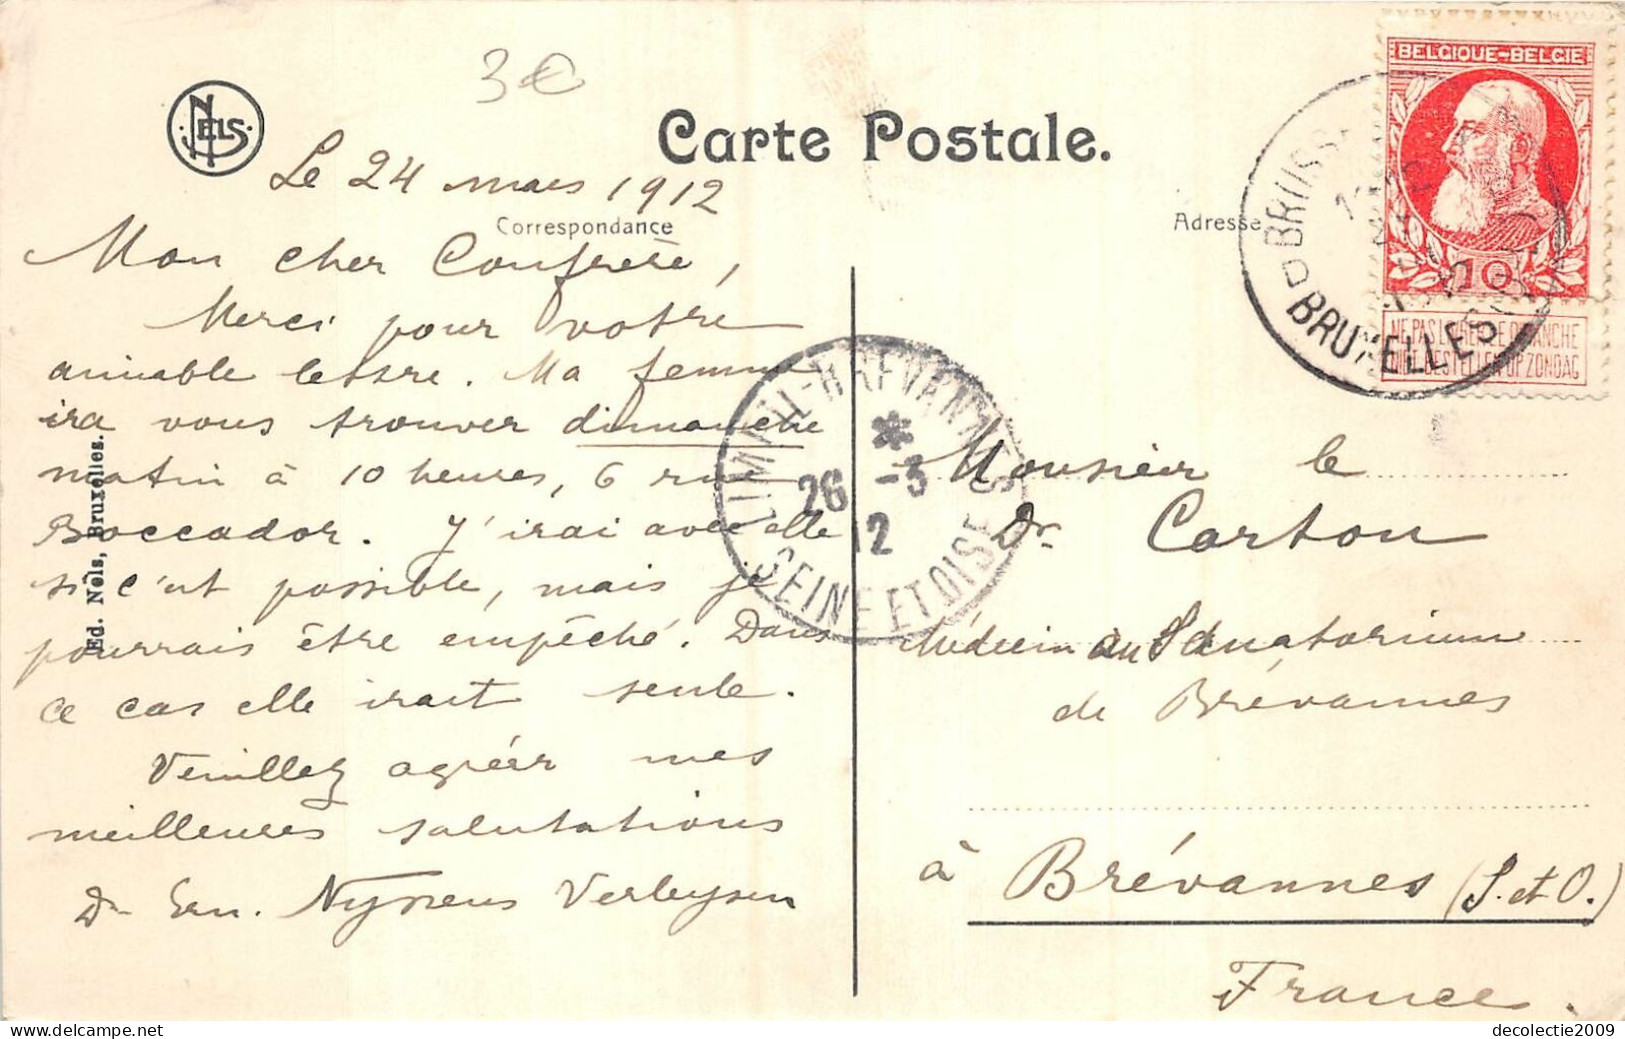 3€
NELS
Carte Postale.
BELGIQUE-BELGIE
10
NE PAS LIVRER LE DIMANCHE
NIET BESTELLEN OP ZONDAG
BRUXELLES
Le 24 mars 1912
Correspondance
Adresse
Mon cher Confrère,
Merci pour votre
aimable lettre. Ma femme
ira vous trouver dimanche
matin à 10 heures, 6 rue
Boccador. J'irai avec elle
si c'est possible, mais je
pourrais être empêché. Dans
ce cas elle irait seule.
Veuillez agréer mes
meilleures salutations
Dr Ern. Nyssens Verleysen
Ed. Nels, Bruxelles.
LIMEIL-BREVANNES
26 -3
12
SEINE ET OISE
Monsieur le
Dr. Carton
Médecin au Sanatorium
de Brévannes
à Brévannes (S. et O.)
France.
decolectie2009